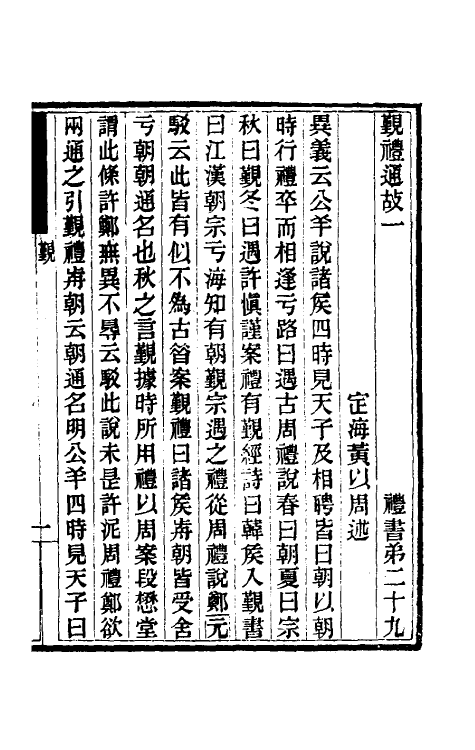 覲禮通故一　禮書弟二十九
定海黃以周述
異義云公羊說諸矦四時見天子及相聘皆曰朝以朝
時行禮卒而相逢亏路曰遇古周禮說春曰朝夏曰宗
秋曰覲冬曰遇許愼謹案禮有覲經詩曰韓矦入覲書
曰江漢朝宗亏海知有朝覲宗遇之禮從周禮說鄭元
駁云此皆有似不爲古昔案覲禮曰諸矦歬朝皆受舍
亏朝朝通名也秋之言覲據時所用禮以周案段懋堂
謂此條許鄭無異不㝵云駁此說未是許泥周禮鄭欲
兩通之引覲禮歬朝云朝通名明公羊四時見天子曰
覲
一